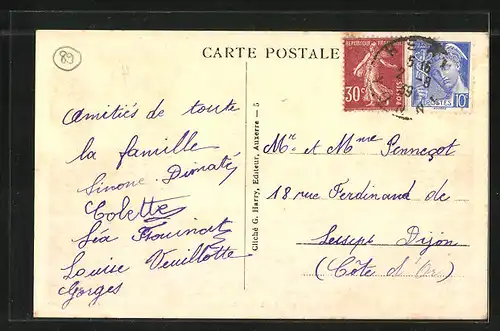 89
CARTE POSTALE
REPUBLIQUE FRANCAISE
30c
POSTES
POSTES 10c
Amitiés de toute
la famille
Simone
Colette
Léa
Louise Veuillotte
Gorges
Cliché G. Harry, Editeur, Auxerre - 5
Mr et Mme Penneçot
18 rue Ferdinand de
Lesseps Dijon
(Côte d'Or)